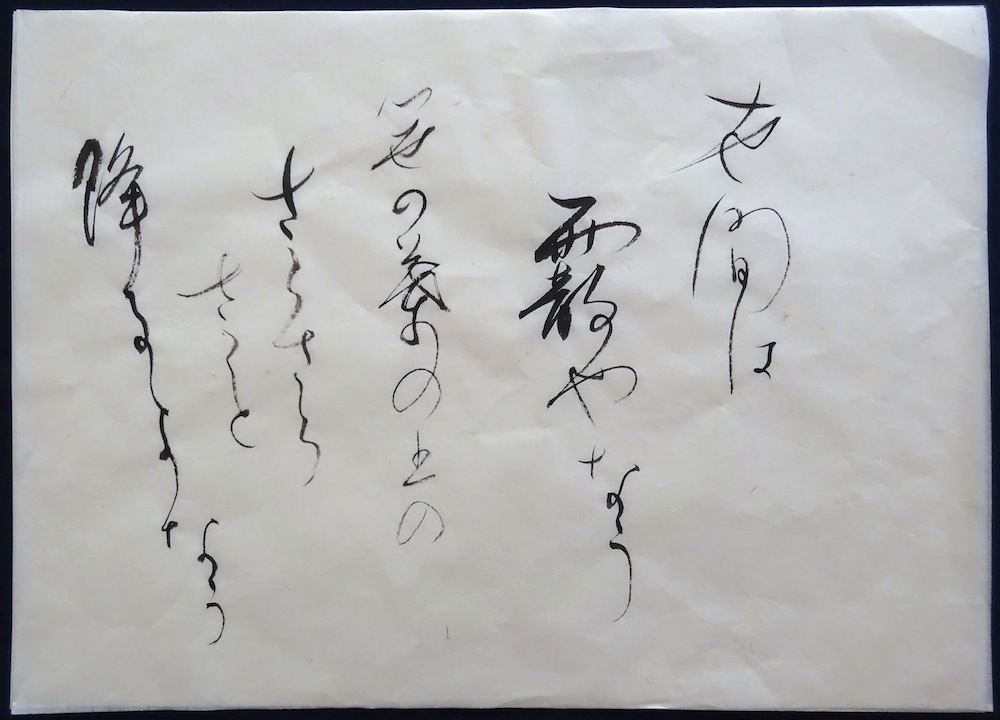 世間は
霰やなう
笹の葉の上の
さらさら
さつと
降るよなう